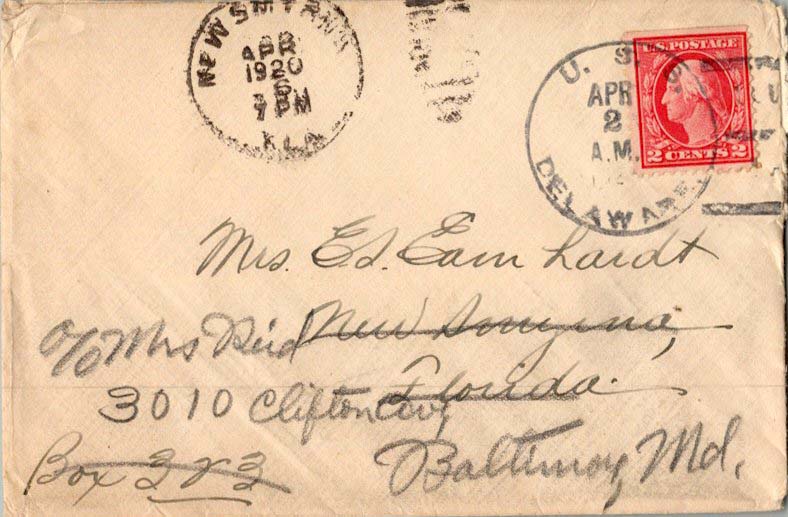 NEW SMYRNA
APR
1920
7 PM
FLA
U. S. S.
APR
2
A.M.
DELAWARE
U.S. POSTAGE
2 CENTS 2
Mrs. Ed. Earnhardt
c/o Mrs New Smyrna,
Florida.
3010 Clifton
Box 323
Baltimore, Md.